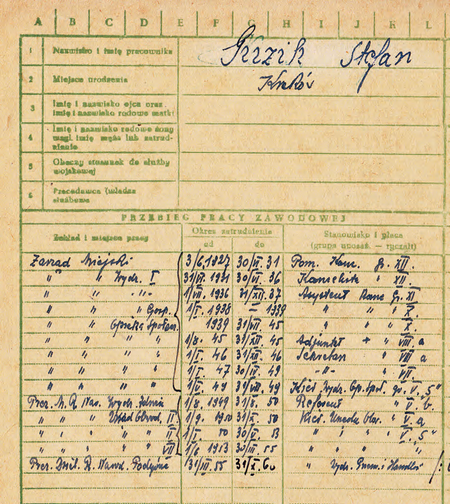 A B C D E F G H I J R L
1 Nazwisko i imię pracownika Stefan
2 Miejsce urodzenia Kraków
3 Imię i nazwisko ojca oraz
imię i nazwisko rodowe matki
4 Imię i nazwisko rodowe żony
wzgl. imię męża lub zatrud-
nienie
5 Obecny stosunek do służby
wojskowej
6 Pracodawca (władza
służbowa
PRZEBIEG PRACY ZAWODOWEJ
Zakład i miejsce pracy Okres zatrudnienia Stanowisko i płaca
od do (grupa uposaż. — ryczałt)
Zarząd Miejski 3/6.1927 30/VI. 31 Pom. Kanc. gr. XII.
" " Wydz. I 1931 30/VI. 36 Kancelista " XII.
" " " 1/VII. 1936 31/XII. 37 Asystent gr. XI
" " Gosp. 1/I. 1938 — 1939 " " X
" " Opieki Społecz. 1939 31/VII. 45 " " X.
" " " 1/8. 45 31/XII. 45 Adjunkt " VIII a
" " " 1/I. 46 31/XII. 46 Sekretarz " VIII a
" " " 1/I. 47 30/IV. 49 " " VII.
" " " 49 31/VII. 49 Kier. Wydz. Op. Społ. gr. V. "5"
Prez. M. R. Nar. Wydz. 1/8. 1949 31/X. 50 Referent " V. b.
" " Urząd Obwod. II 1950 31/X. 50 Kier. Urzędu Obw. " V. a
" " " II 50 30/V. 53 " " " V. "5"
" " " VII 1/6 1953 30/III 55 " "
Prez. Dziel. R. Narod. Podgórze 31/III. 55 31/X. 60 " Wydz. Przem. i Handlu